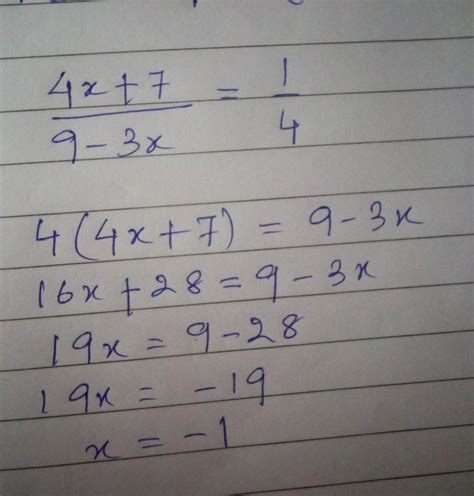 4x+7 / 9-3x = 1/4
4(4x+7) = 9-3x
16x+28 = 9-3x
19x = 9-28
19x = -19
x = -1